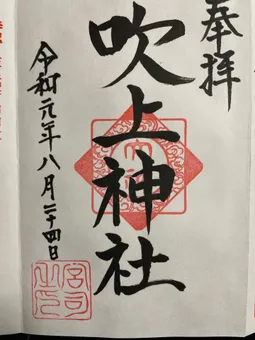 奉拝
吹上神社
令和元年八月二十四日
宮司之印